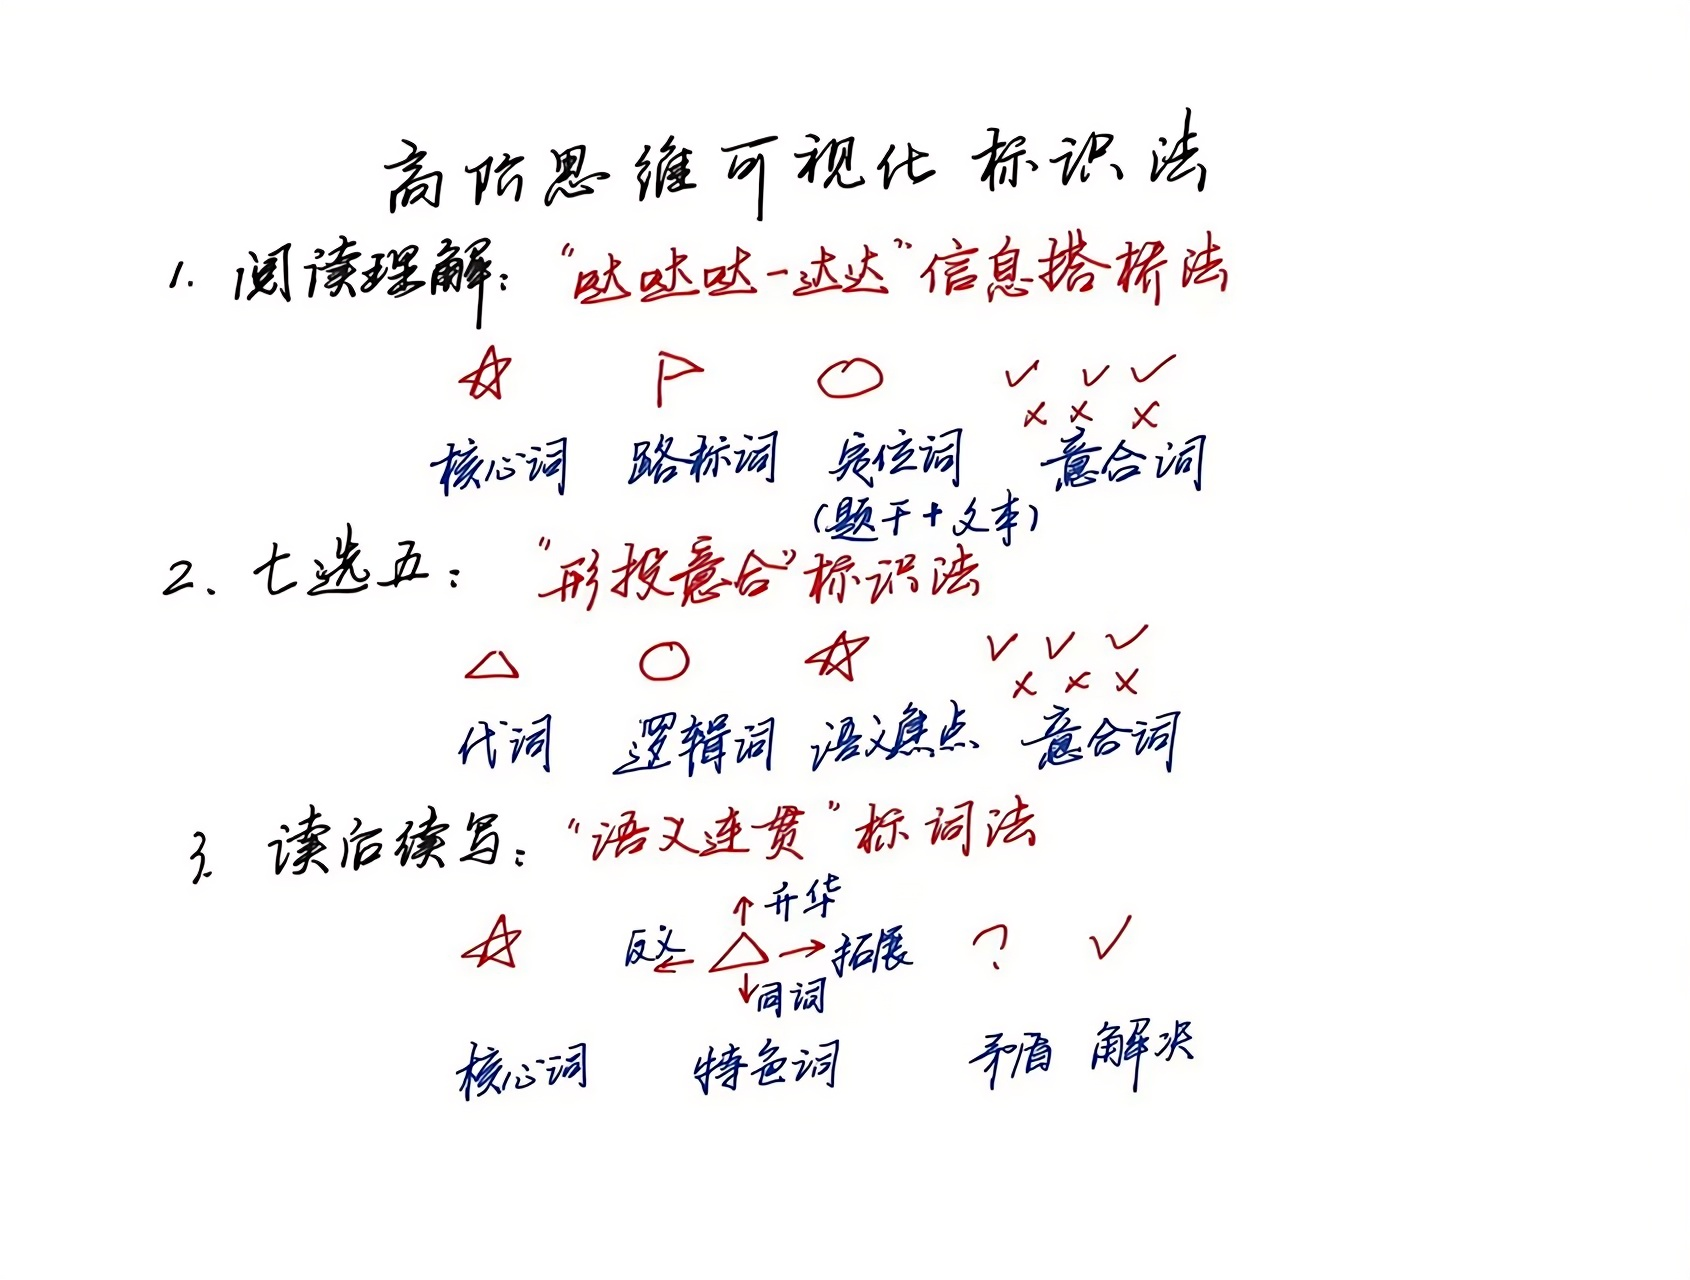 高阶思维可视化标识法
1. 阅读理解：“哒哒哒-达达”信息搭桥法
☆ ○ ✓ ✓ ✓
× × ×
核心词 路标词 定位词 意合词
(题干+文本)
2. 七选五：“形投意合”标识法
△ ○ ☆ ✓ ✓ ✓
× × ×
代词 逻辑词 语义焦点 意合词
3. 读后续写：“语义连贯”标词法
↑ 升华
☆ 反义 ← △ → 拓展 ? ✓
↓ 同词
核心词 特色词 矛盾 解决